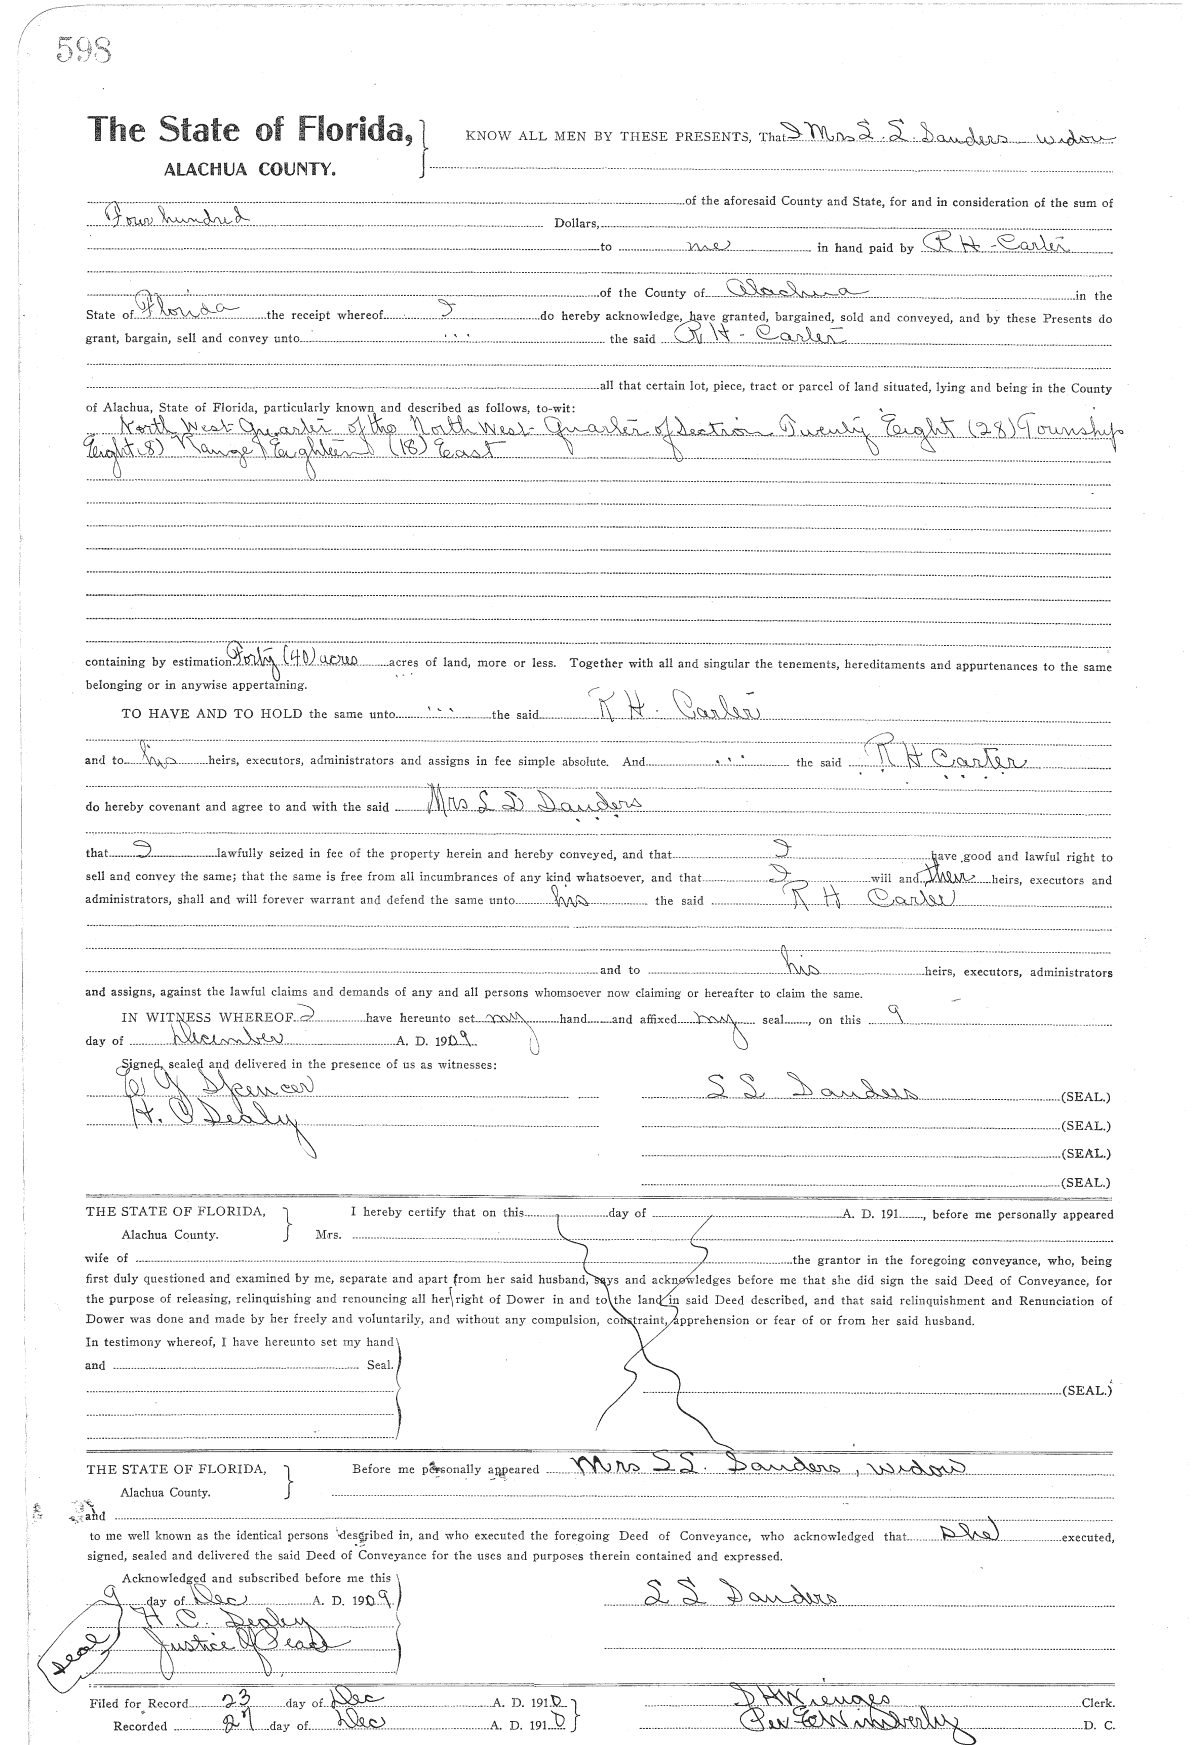 598
The State of Florida, KNOW ALL MEN BY THESE PRESENTS, That I Mrs S. S. Sanders widow
ALACHUA COUNTY.
of the aforesaid County and State, for and in consideration of the sum of
Four hundred Dollars,
to me in hand paid by R H - Carter
of the County of Alachua in the
State of Florida the receipt whereof I do hereby acknowledge, have granted, bargained, sold and conveyed, and by these Presents do
grant, bargain, sell and convey unto the said R H - Carter
all that certain lot, piece, tract or parcel of land situated, lying and being in the County
of Alachua, State of Florida, particularly known and described as follows, to-wit:
North West Quarter of the North West Quarter of Section Twenty Eight (28) Township
Eight (8) Range Eighteen (18) East
containing by estimation Forty (40) acres acres of land, more or less. Together with all and singular the tenements, hereditaments and appurtenances to the same
belonging or in anywise appertaining.
TO HAVE AND TO HOLD the same unto the said R H. Carter
and to his heirs, executors, administrators and assigns in fee simple absolute. And the said R H Carter
do hereby covenant and agree to and with the said Mrs S S Sanders
that I lawfully seized in fee of the property herein and hereby conveyed, and that I have good and lawful right to
sell and convey the same; that the same is free from all incumbrances of any kind whatsoever, and that I will and their heirs, executors and
administrators, shall and will forever warrant and defend the same unto his the said R H Carter
and to his heirs, executors, administrators
and assigns, against the lawful claims and demands of any and all persons whomsoever now claiming or hereafter to claim the same.
IN WITNESS WHEREOF I have hereunto set my hand and affixed my seal, on this 9
day of December A. D. 1909.
Signed, sealed and delivered in the presence of us as witnesses:
Spencer S S Sanders (SEAL.)
H. C Dealy (SEAL.)
(SEAL.)
(SEAL.)
THE STATE OF FLORIDA, I hereby certify that on this day of A. D. 191, before me personally appeared
Alachua County. Mrs.
wife of the grantor in the foregoing conveyance, who, being
first duly questioned and examined by me, separate and apart from her said husband, says and acknowledges before me that she did sign the said Deed of Conveyance, for
the purpose of releasing, relinquishing and renouncing all her right of Dower in and to the land in said Deed described, and that said relinquishment and Renunciation of
Dower was done and made by her freely and voluntarily, and without any compulsion, constraint, apprehension or fear of or from her said husband.
In testimony whereof, I have hereunto set my hand
and Seal.
(SEAL.)
THE STATE OF FLORIDA, Before me personally appeared Mrs S S. Sanders, widow
Alachua County.
and
to me well known as the identical persons described in, and who executed the foregoing Deed of Conveyance, who acknowledged that she executed,
signed, sealed and delivered the said Deed of Conveyance for the uses and purposes therein contained and expressed.
Acknowledged and subscribed before me this
9 day of Dec A. D. 1909 S S Sanders
H. C. Dealy
Seal Justice of Peace
Filed for Record 23 day of Dec A. D. 1910 S H Wienges Clerk.
Recorded 27 day of Dec A. D. 1910 Per E Wimberly D. C.